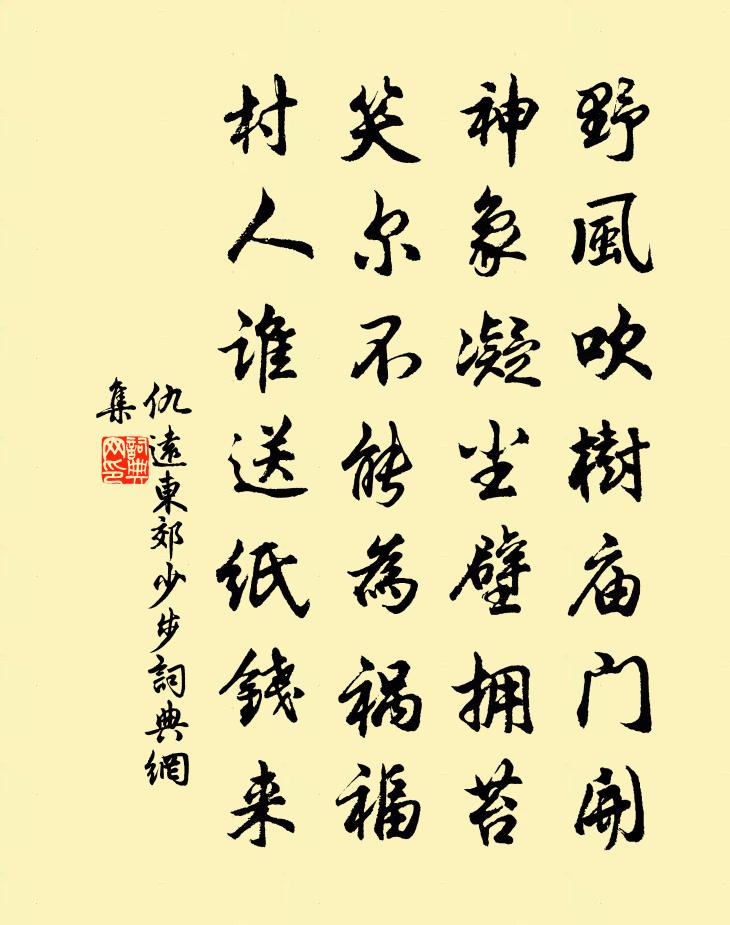 野風吹樹庙门開
神象凝尘壁拥苔
笑尔不能為祸福
村人谁送紙錢来
仇遠東郊少步詞典網
集
詞典网印